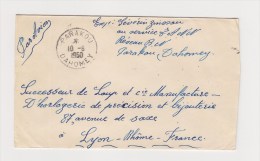 Par avion
PARAKOU
10-5
1950
DAHOMEY
Exp:
au service
Parakou, Dahomey
Successeur de Loup et Cie Manufacture -
D'horlogerie de précision et bijouterie
87 avenue de Saxe
à
Lyon - Rhône - France